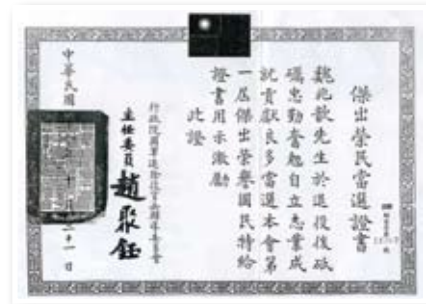 傑出榮民當選證書
魏兆歆先生於退役後砥
礪忠勤奮勉自立志業成
就貢獻良多當選本會第
一屆傑出榮譽國民特給
證書用示激勵
此證
行政院國軍退除役官兵輔導委員會
主任委員 趙聚鈺
中華民國 十月三十一日